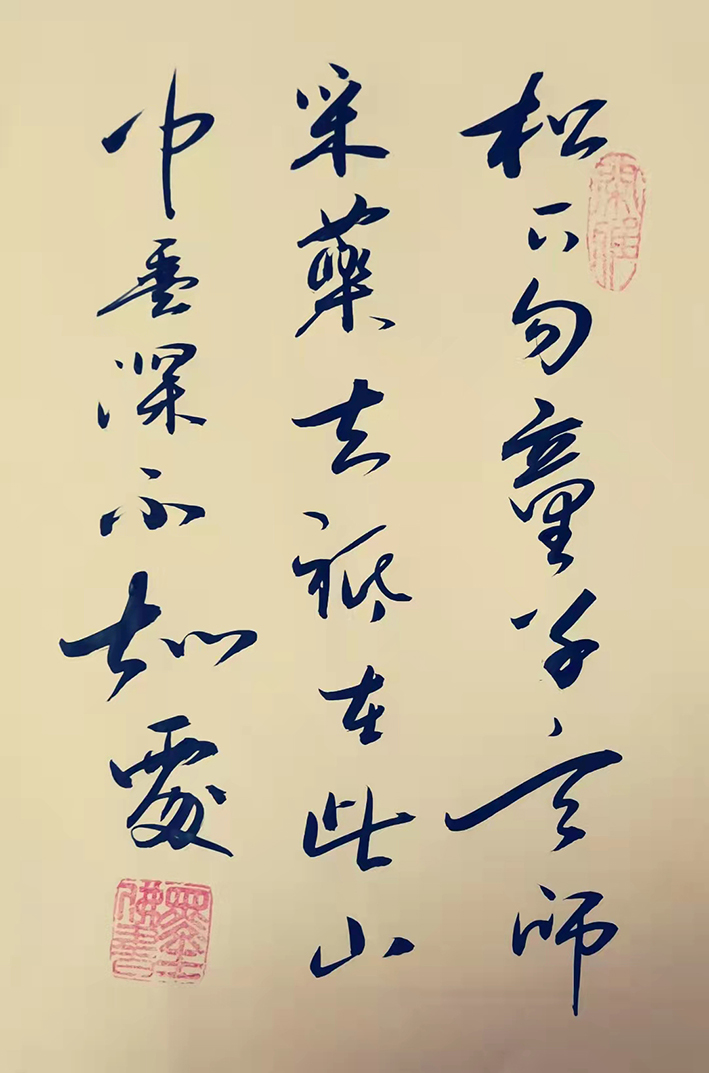 松下問童子言師
采藥去祗在此山
中雲深不知處